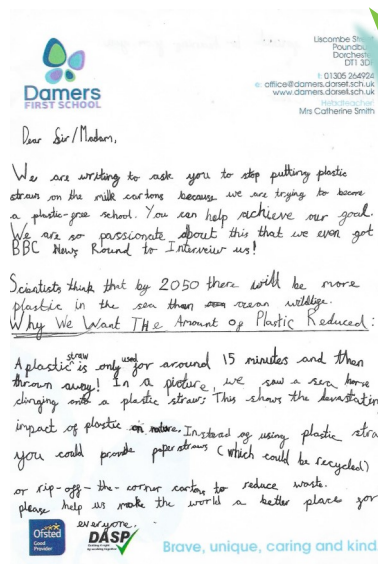 Damers
FIRST SCHOOL
Liscombe Str
Poundbu
Dorcheste
DT1 3D
t: 01305 264924
e: office@damers.dorset.sch.uk
www.damers.dorset.sch.uk
Headteacher
Mrs Catherine Smith
Dear Sir/Madam,
We are writing to ask you to stop putting plastic
straws on the milk cartons because we are trying to become
a plastic-free school. You can help achieve our goal.
We are so passionate about this that we even got
BBC News Round to Interview us!
Scientists think that by 2050 there will be more
plastic in the sea than ocean wildlife.
Why We Want THe Amount of Plastic Reduced:
A plastic straw is only used for around 15 minutes and then
thrown away! In a picture, we saw a sea horse
clinging onto a plastic straw: This shows the devastatin
impact of plastic on nature. Instead of using plastic stra
you could provide paper straws (which could be recycled)
or rip-off-the-corner cartons to reduce waste.
please help us make the world a better place for
everyone.
Ofsted
Good
Provider
DASP
Brave, unique, caring and kind